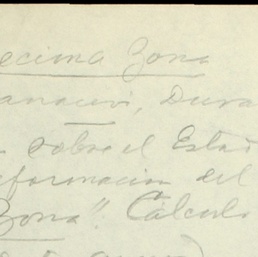 ecima Zona
Dura
sobre el Esta
eformacion del
Zona". Calculo